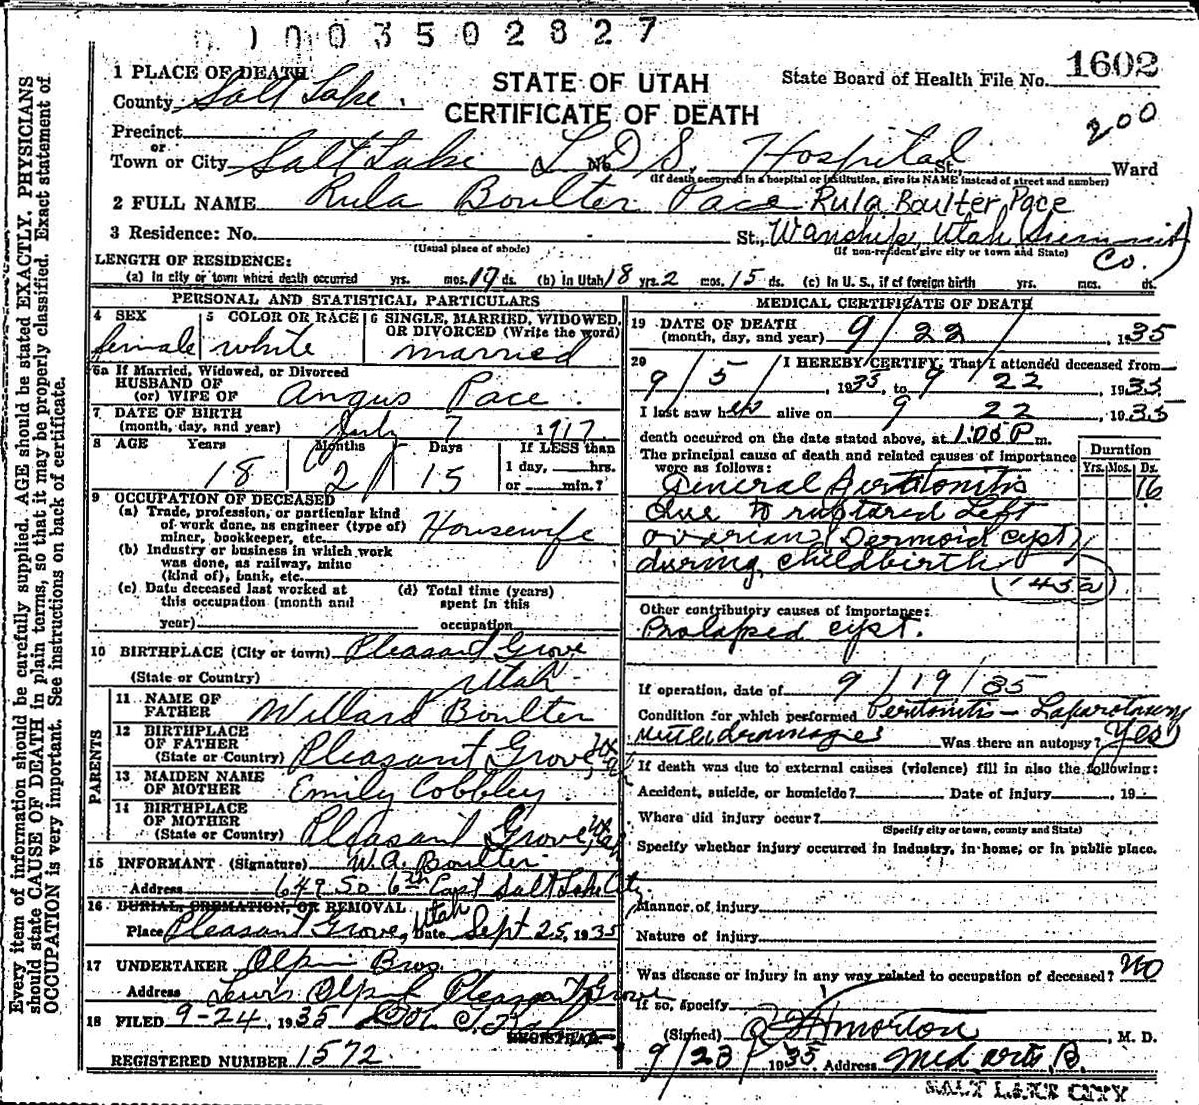 003502827
1602
1 PLACE OF DEATH
STATE OF UTAH
State Board of Health File No.
County Salt Lake.
CERTIFICATE OF DEATH
200
Precinct
or
Town or City Salt Lake No. L. D. S. Hospital St., Ward
(If death occurred in a hospital or institution, give its NAME instead of street and number)
2 FULL NAME Rula Boulter Pace Rula Boulter Pace
3 Residence: No. St., Wanship, Utah Summit Co.)
(Usual place of abode) (If non-resident give city or town and State)
LENGTH OF RESIDENCE:
(a) In city or town where death occurred yrs. mos. 17 ds. (b) In Utah 18 yrs. 2 mos. 15 ds. (c) In U. S., if of foreign birth yrs. mos. ds.
PERSONAL AND STATISTICAL PARTICULARS
4 SEX female
5 COLOR OR RACE white
6 SINGLE, MARRIED, WIDOWED, OR DIVORCED (Write the word) married
6a If Married, Widowed, or Divorced
HUSBAND OF
(or) WIFE OF Angus Pace.
7 DATE OF BIRTH
(month, day, and year) July 7 1917
8 AGE Years Months Days If LESS than
18 2 15 1 day, hrs.
or min.?
9 OCCUPATION OF DECEASED
(a) Trade, profession, or particular kind
of work done, as engineer (type of)
miner, bookkeeper, etc. Housewife
(b) Industry or business in which work
was done, as railway, mine
(kind of), bank, etc.
(c) Date deceased last worked at
this occupation (month and
year)
(d) Total time (years)
spent in this
occupation
10 BIRTHPLACE (City or town) Pleasant Grove
(State or Country) Utah
PARENTS
11 NAME OF
FATHER Willard Boulter
12 BIRTHPLACE
OF FATHER
(State or Country) Pleasant Grove,
13 MAIDEN NAME
OF MOTHER Emily Cobbley
14 BIRTHPLACE
OF MOTHER
(State or Country) Pleasant Grove,
15 INFORMANT (Signature) W. A. Boulter
Address 649 So 6th East Salt Lake City
16 BURIAL, CREMATION, OR REMOVAL
Place Pleasant Grove, Utah Date Sept 25, 1935
17 UNDERTAKER Olpin Bros.
Address Pleasant Grove
18 FILED 9-24, 1935
REGISTRAR
REGISTERED NUMBER 1572
MEDICAL CERTIFICATE OF DEATH
19 DATE OF DEATH
(month, day, and year) 9/22/, 1935
20 I HEREBY CERTIFY, That I attended deceased from
9/5/, 1935, to 9 22, 1935
I last saw her alive on 9 22 1935
death occurred on the date stated above, at 1:05 P m.
The principal cause of death and related causes of importance
were as follows:
Duration
Yrs. Mos. Ds.
General Peritonitis 16
due to ruptured left
ovarian (Dermoid cyst)
during childbirth
Other contributory causes of importance:
Prolapsed cyst.
If operation, date of 9/19/35
Condition for which performed Peritonitis - Laparotomy
Was there an autopsy? Yes
If death was due to external causes (violence) fill in also the following:
Accident, suicide, or homicide? Date of injury , 19
Where did injury occur?
(Specify city or town, county and State)
Specify whether injury occurred in industry, in home, or in public place.
Manner of injury
Nature of injury
Was disease or injury in any way related to occupation of deceased? No
If so, specify
(Signed) Morton, M. D.
9/23/ 1935 Address Med. Arts B.
SALT LAKE CITY
Every item of information should be carefully supplied. AGE should be stated EXACTLY. PHYSICIANS
should state CAUSE OF DEATH in plain terms, so that it may be properly classified. Exact statement of
OCCUPATION is very important. See instructions on back of certificate.